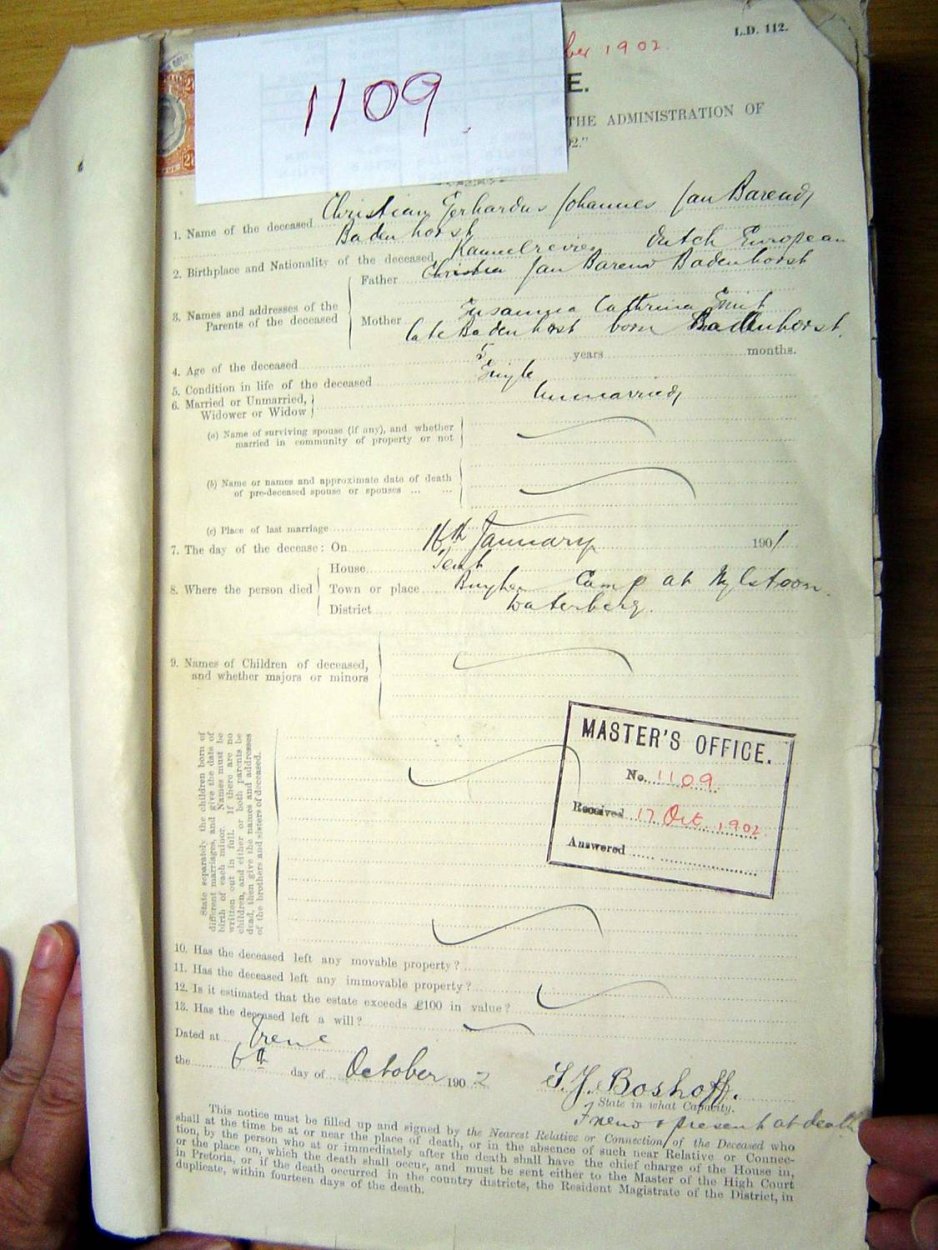 L.D. 112.
ber 1902.
1109
E.
THE ADMINISTRATION OF
02."
1. Name of the deceased Christian Gerhardus Johannes Jan Barend
Badenhorst
2. Birthplace and Nationality of the deceased Dutch European
3. Names and addresses of the Parents of the deceased
Father Jan Barend Badenhorst
Mother Cathrina Smit
late Badenhorst born Badenhorst.
4. Age of the deceased 5 years months.
5. Condition in life of the deceased Single
6. Married or Unmarried, Widower or Widow Unmarried
(a) Name of surviving spouse (if any), and whether
married in community of property or not
(b) Name or names and approximate date of death
of pre-deceased spouse or spouses ... ...
(c) Place of last marriage
7. The day of the decease: On 16th January 1901
8. Where the person died
House Tent
Town or place Burgher Camp at Nylstroom.
District Waterberg.
9. Names of Children of deceased,
and whether majors or minors
State separately the children born of
different marriages, and give the date of
birth of each minor. Names must be
written out in full. If there are no
children, and either or both parents be
dead, then give the names and addresses
of the brothers and sisters of deceased.
MASTER'S OFFICE.
No. 1109
Received 17 Oct. 1902
Answered
10. Has the deceased left any movable property?
11. Has the deceased left any immovable property?
12. Is it estimated that the estate exceeds £100 in value?
13. Has the deceased left a will?
Dated at Irene
the 6th day of October 1902
S.J. Boshoff.
State in what Capacity.
Friend & present at death
This notice must be filled up and signed by the Nearest Relative or Connection of the Deceased who
shall at the time be at or near the place of death, or in the absence of such near Relative or Connec-
tion, by the person who at or immediately after the death shall have the chief charge of the House in,
or the place on, which the death shall occur, and must be sent either to the Master of the High Court
in Pretoria, or if the death occurred in the country districts, the Resident Magistrate of the District, in
duplicate, within fourteen days of the death.